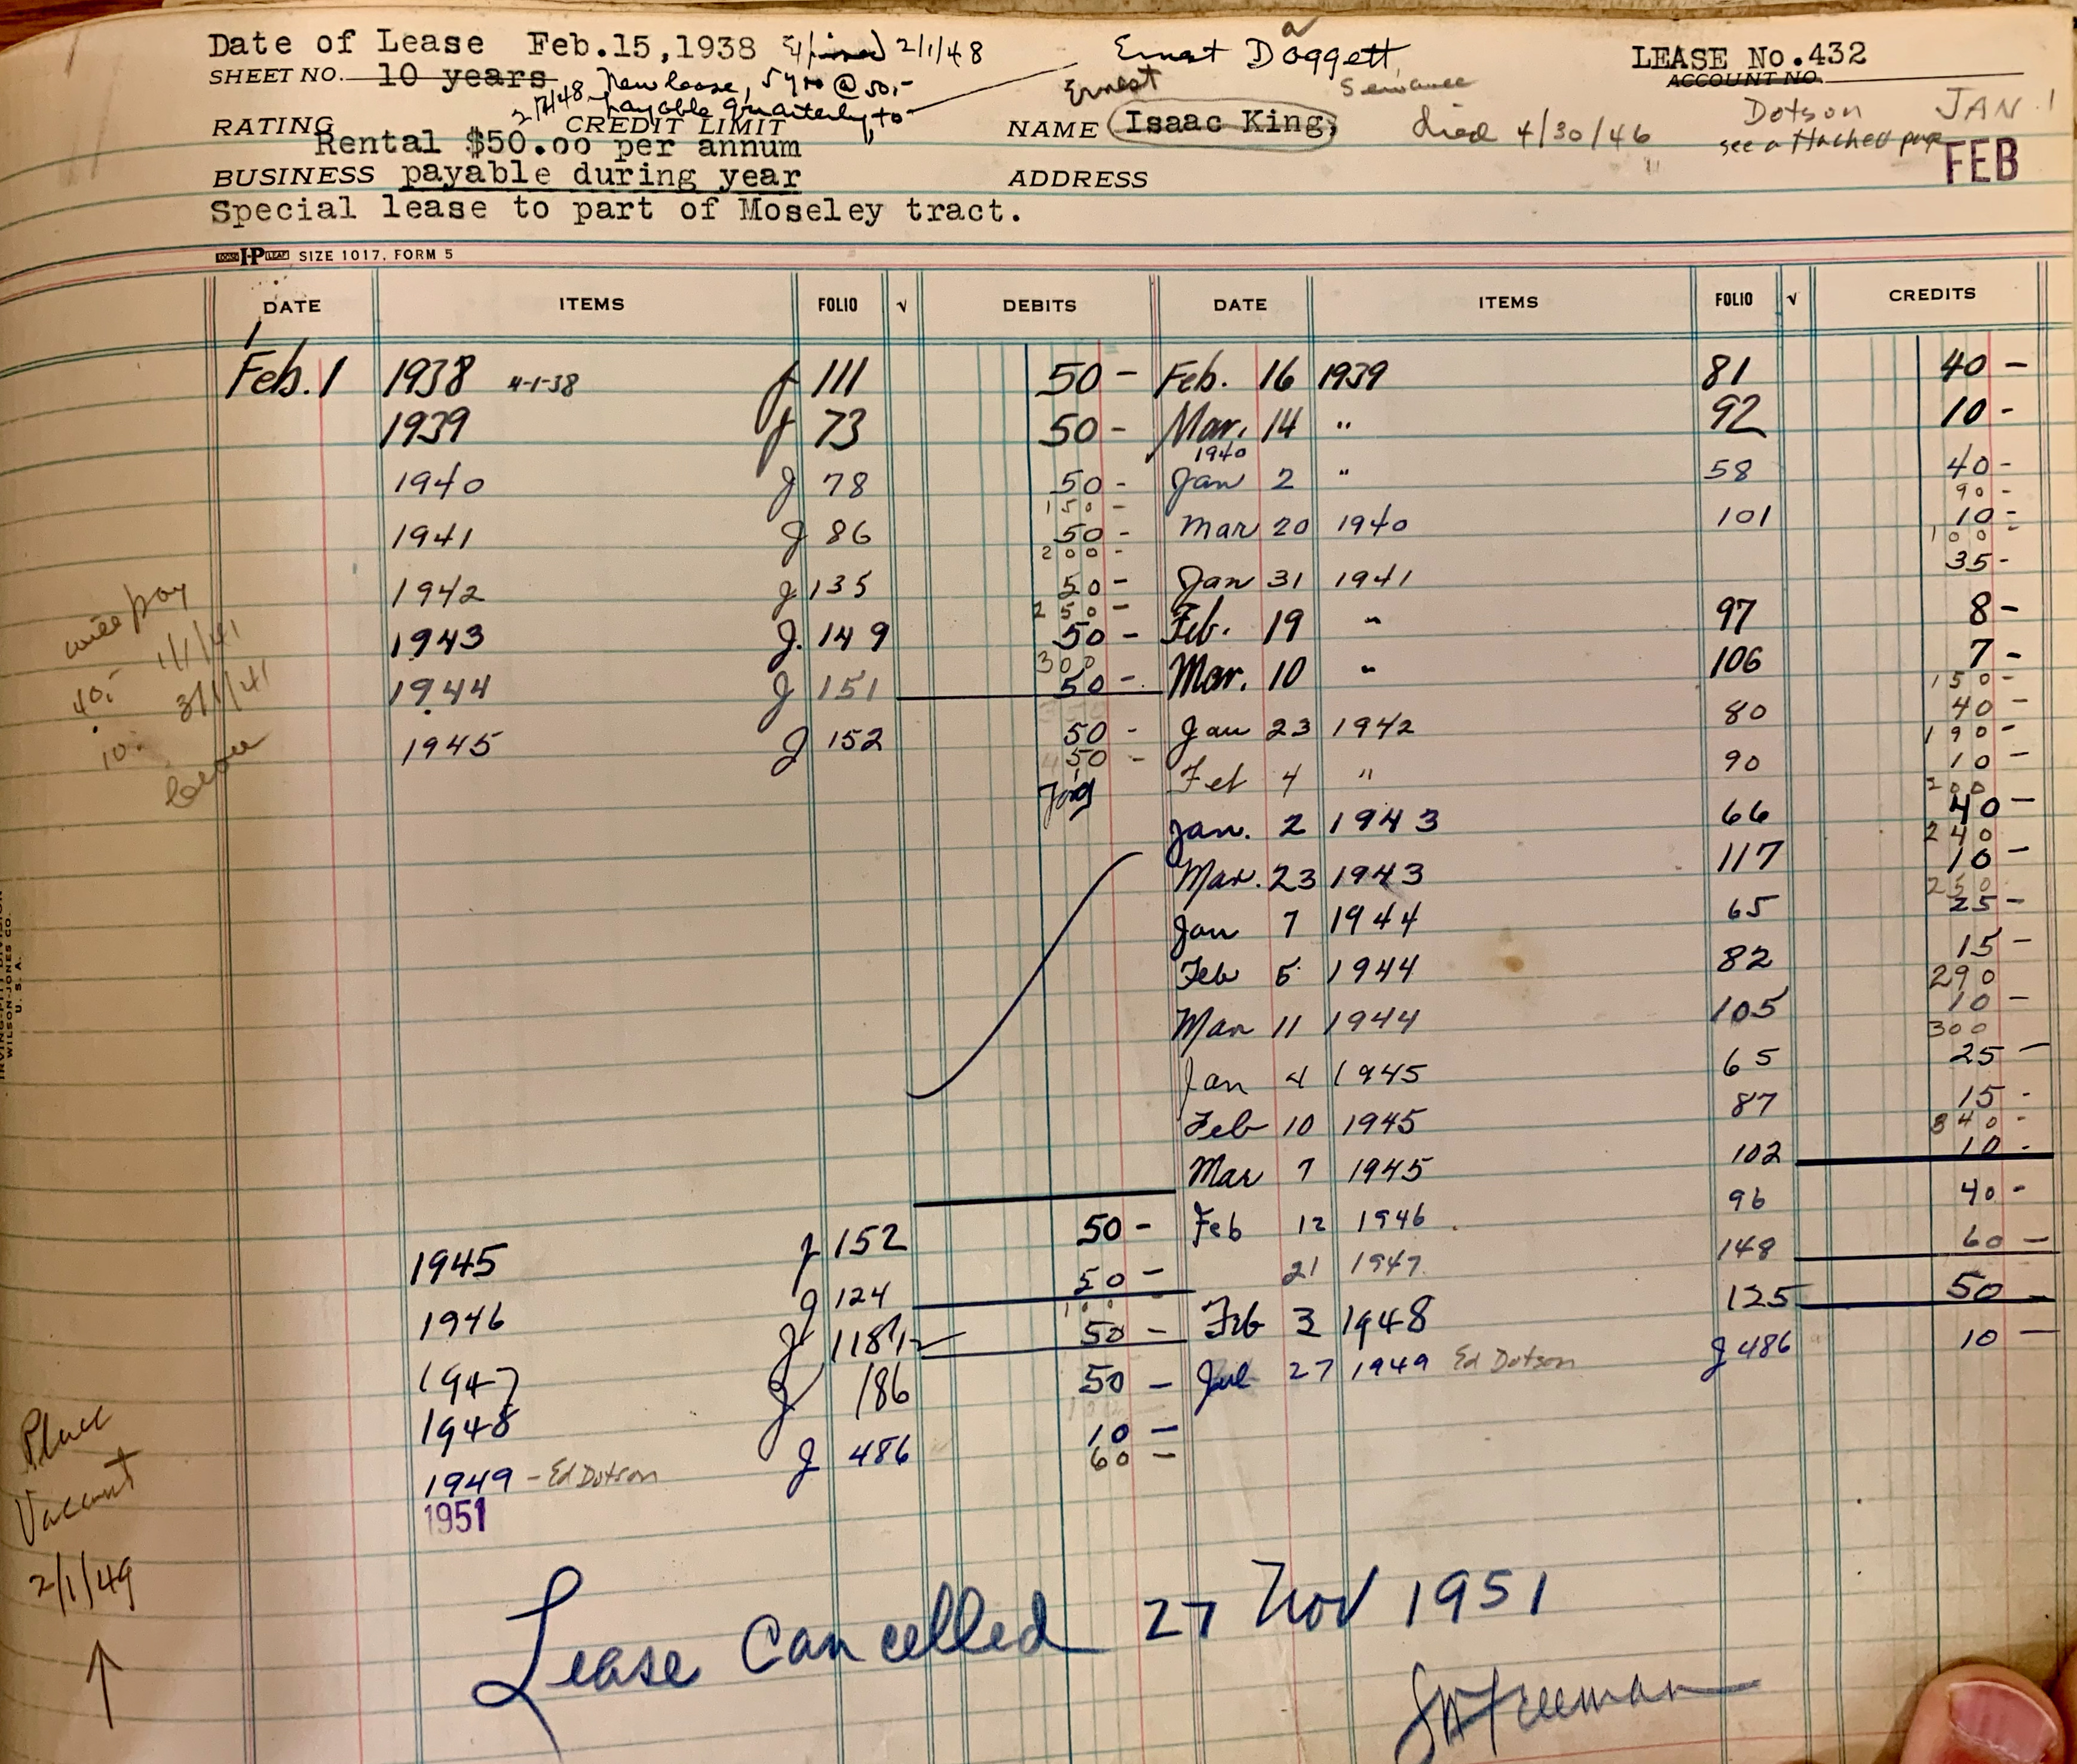 Date of Lease Feb.15,1938 Expired 2/1/48 Ernest Daggett LEASE No.432
SHEET NO. 10 years ACCOUNT NO.
2/7/48 New lease, 5 yrs @ 50.- Ernest Sewanee
payable quarterly, to Dotson JAN. 1
RATING CREDIT LIMIT NAME Isaac King, died 4/30/46 see attached page
Rental $50.00 per annum FEB
BUSINESS payable during year ADDRESS
Special lease to part of Moseley tract.
LOOSE I-P LEAF SIZE 1017, FORM 5
DATE ITEMS FOLIO √ DEBITS DATE ITEMS FOLIO √ CREDITS
Feb. 1 1938 4-1-38 J 111 50 - Feb. 16 1939 81 40 -
1939 J 73 50 - Mar. 14 " 92 10 -
1940
1940 J 78 50 - Jan 2 " 58 40 -
150 - 90 -
1941 J 86 50 - Mar 20 1940 101 10 -
200 - 100 -
1942 J 135 50 - Jan 31 1941 35 -
250 -
1943 J. 149 50 - Feb. 19 " 97 8 -
300
1944 J 151 50 - Mar. 10 " 106 7 -
150 -
1945 J 152 50 - Jan 23 1942 80 40 -
450 - 190 -
Feb 4 " 90 10 -
200
Jan. 2 1943 66 40 -
240
Mar. 23 1943 117 10 -
250
Jan 7 1944 65 25 -
Feb 5 1944 82 15 -
290
Mar 11 1944 105 10 -
300
Jan 4 1945 65 25 -
Feb 10 1945 87 15 -
340 -
Mar 7 1945 102 10 -
1945 J 152 50 - Feb 12 1946 96 40 -
1946 J 124 50 - 21 1947 148 60 -
100 -
1947 J 118 50 - Feb 3 1948 125 50 -
1948 J 186 50 - Jul 27 1949 Ed Dotson J 486 10 -
1949 - Ed Dotson J 486 10 -
60 -
1951
will pay
40.- 1/1/41
10.- 3/1/41
WILSON-JONES CO.
U. S. A.
Place
Vacant
2/1/49
↑
Lease Cancelled 27 Nov 1951
SW Freeman